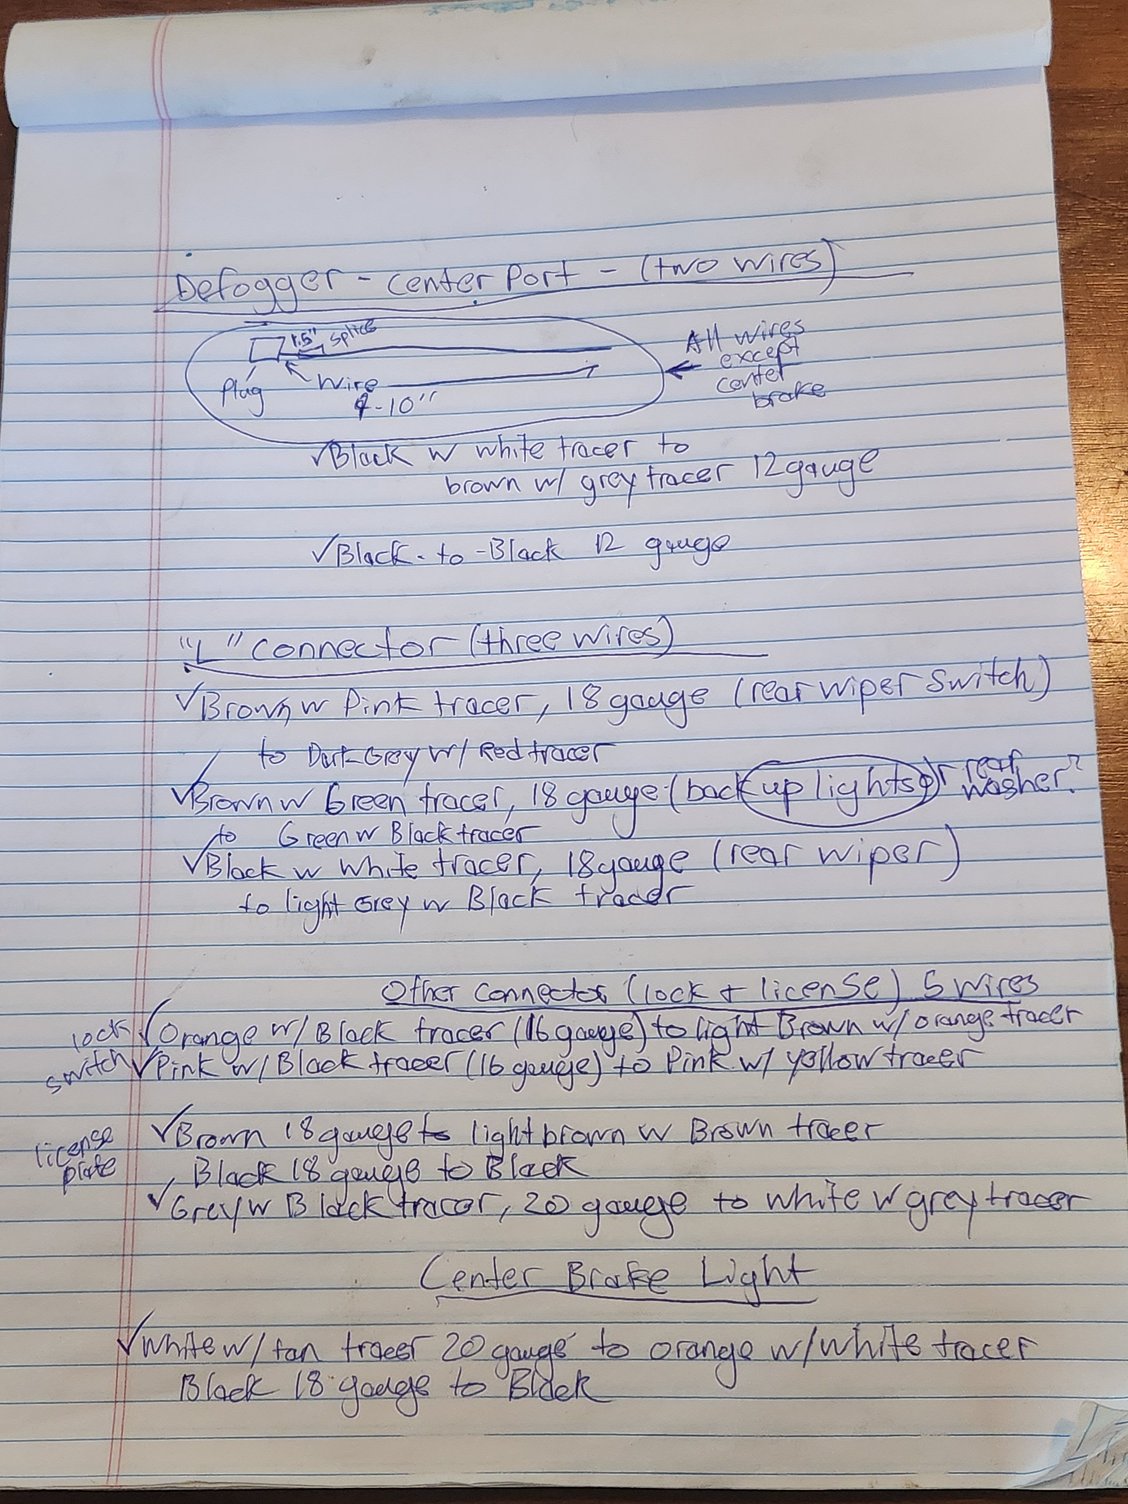 Defogger - center port - (two wires)
1.5" splice
Plug
Wire
9-10"
All wires
except
center
brake
✓Black w white tracer to
brown w/ grey tracer 12 gauge
✓Black - to - Black 12 gauge
"L" connector (three wires)
✓Brown w Pink tracer, 18 gauge (rear wiper switch)
to Dark Grey w/ Red tracer
✓Brown w Green tracer, 18 gauge (back up lights or rear washer?
to Green w Black tracer
✓Black w white tracer, 18 gauge (rear wiper)
to light Grey w Black tracer
Other connector (lock + license) 5 wires
lock switch
✓Orange w/ Black tracer (16 gauge) to light Brown w/ orange tracer
✓Pink w/ Black tracer (16 gauge) to Pink w/ yellow tracer
license plate
✓Brown 18 gauge to light brown w Brown tracer
Black 18 gauge to Black
✓Grey w Black tracer, 20 gauge to white w grey tracer
Center Brake Light
✓White w/ tan tracer 20 gauge to orange w/ white tracer
Black 18 gauge to Black